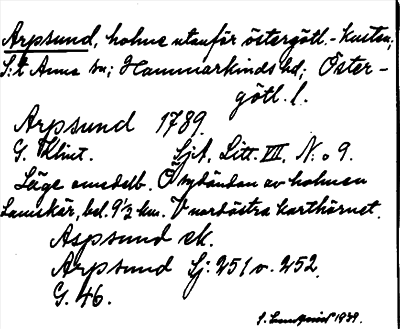 Arpsund, holme utanför östergötl.-kusten;
S:t Anna sn; Hammarkinds hd; Öster-
götl. l.
Arpsund 1789.
G. Klint. Sjk. Litt. VII. N:o 9.
Läge omedelb. O sydändan av holmen
Lamskär, bel. 9½ km. V nordöstra karthörnet.
Aspsund ek.
Arpsund Sj: 251 o. 252.
G. 46.
S. 1939.